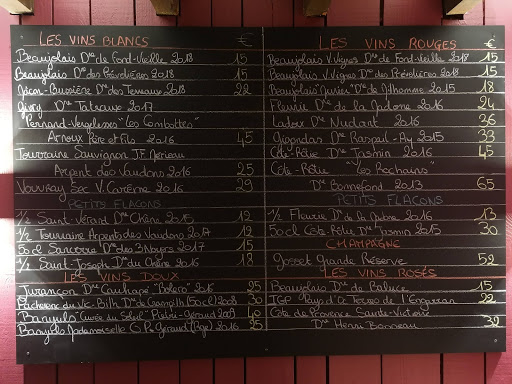 LES VINS BLANCS €
Beaujolais Dne de Font-Vieille 2018 15
Beaujolais Dne des Prévolières 2018 15
Macon-Bussière Dne des Terreaux 2018 22
Givry Dne Tatraux 2017
Pernand-Vergelesses "Les Combottes"
Arnoux Père et Fils 2016 45
Touraine Sauvignon JF Merieau
Arpent des Vaudons 2016 25
Vouvray Sec V. Carême 2016 29
PETITS FLACONS
1/2 Saint-Vérand Dne Chêne 2015 12
1/2 Touraine Arpents des Vaudons 2017 12
50cl Sancerre Dne des 3 Noyers 2017 15
1/2 Saint-Joseph Dne du Chêne 2016 18
LES VINS DOUX
Jurançon Dne Cauhapé "Boléro" 2016 25
Pacherenc du Vic-Bilh Dne de (50cl) 2008 30
Banyuls "Cuvée du Soleil" 2009 40
Banyuls Mademoiselle G P. Géraud (Rge) 2016 25
LES VINS ROUGES €
Beaujolais V.Vignes Dne de Font-vieille 2018 15
Beaujolais V.Vignes Dne des Prévolières 2018 15
Beaujolais "Junien" Dne de J.Thomme 2015 18
Fleurie Dne de la Madone 2016 24
Ladoix Dne Nudant 2016 36
Gigondas Dne Raspail-Ay 2015 33
Côte-Rôtie Dne Jasmin 2016 45
Côte-Rôtie "Les Rochains"
Dne Bonnefond 2013 65
PETITS FLACONS
1/2 Fleurie Dne de la Madone 2016 13
50cl Côte-Rôtie Dne Jasmin 2015 30
CHAMPAGNE
Gosset Grande Réserve 52
LES VINS ROSÉS
Beaujolais Dne de Baluce 15
IGP Pays d'Oc Terroir de l'Engarran 22
Côte de Provence Sainte-Victoire
Dne Henri Bonneau 32